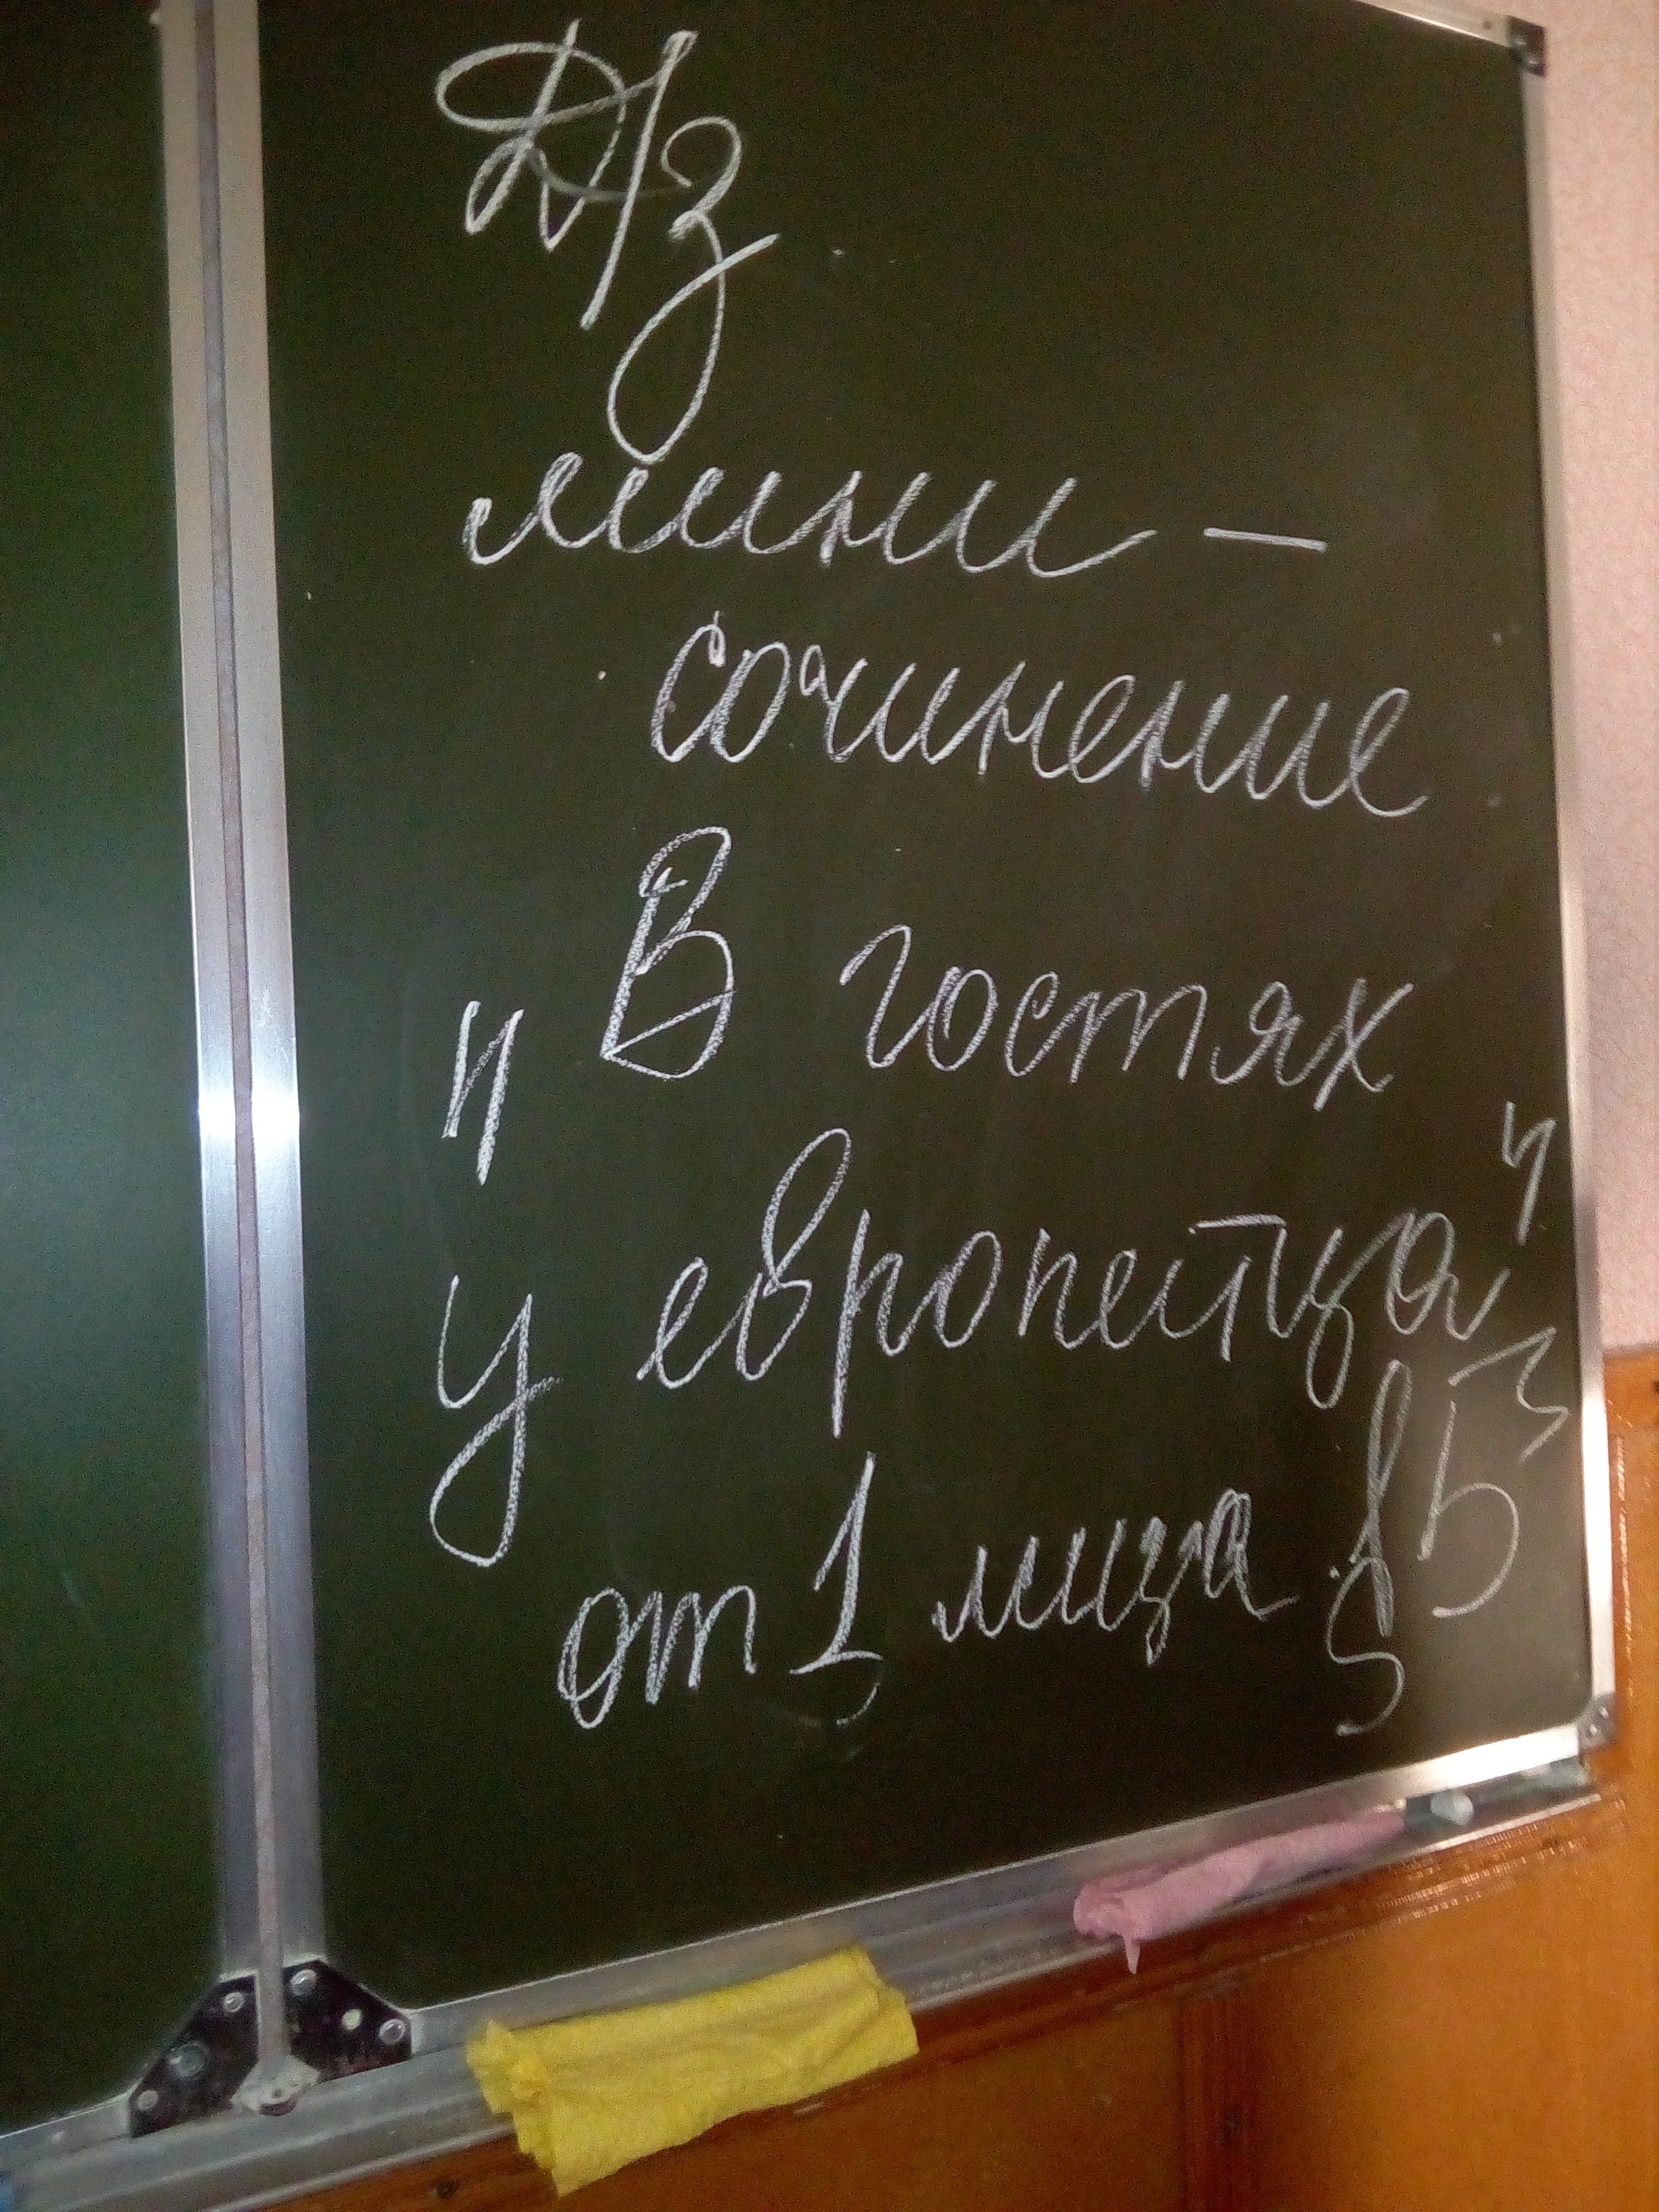 Д/з
мини –
сочинение
" В гостях
у европейца"
от 1 лица